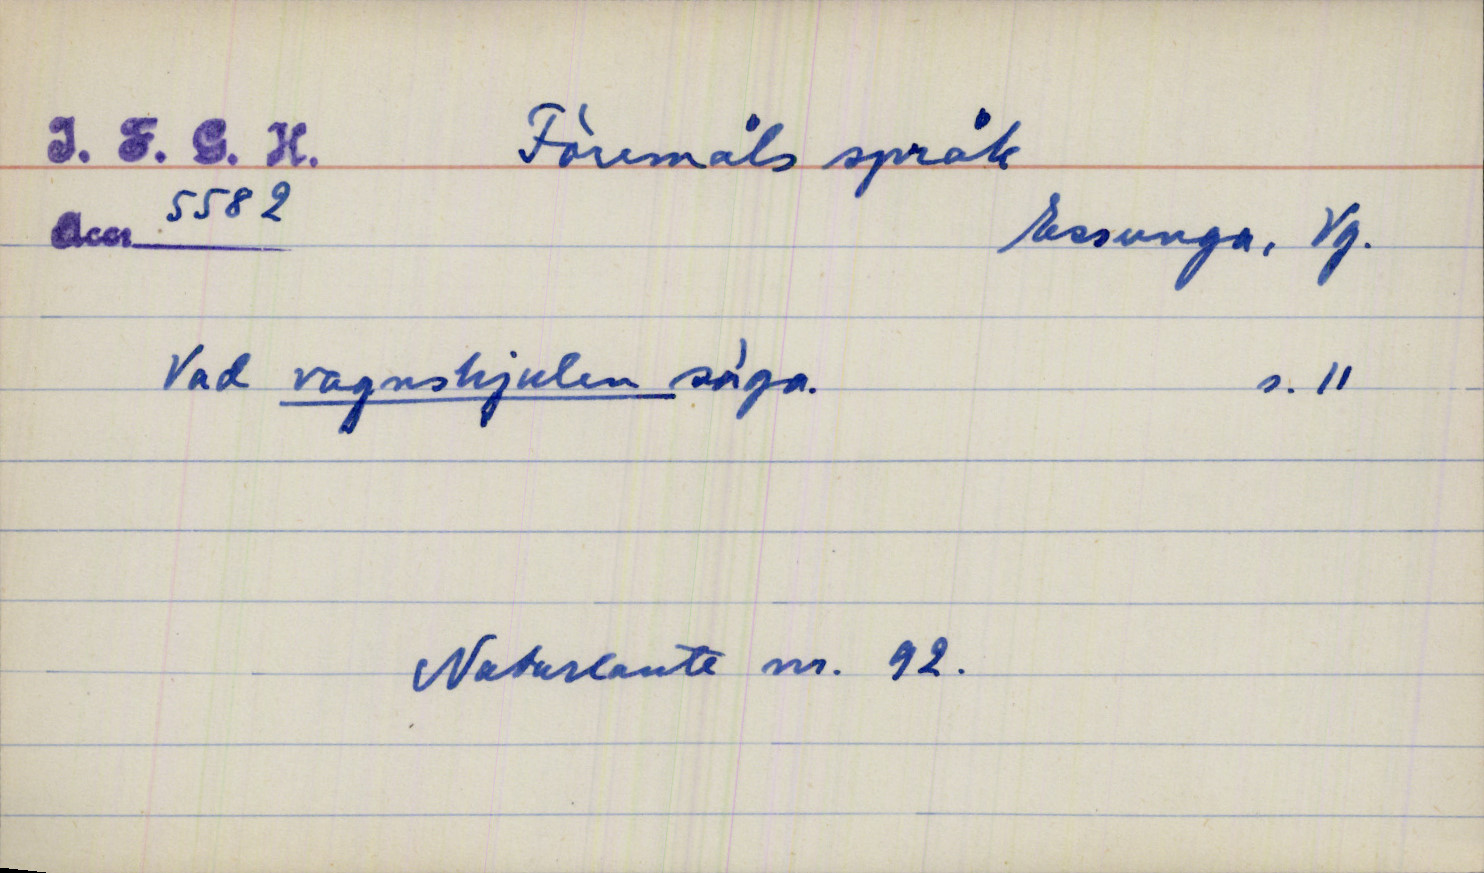 I. F. G. H. Föremåls språk
Acc. 5582
Essunga, Vg.
Vad vagnshjulen säga. s. 11
Naturlaute nr. 92.